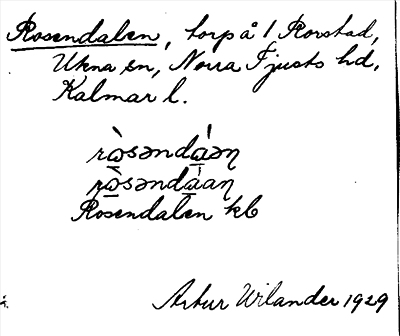 Rosendalen, torp å 1 Rorstad,
Ukna sn, Norra Tjusts hd,
Kalmar l.
rò̱səndá̱əɳ
rò̱səndá̱aɳ
Rosendalen kb
Artur Wilander 1929